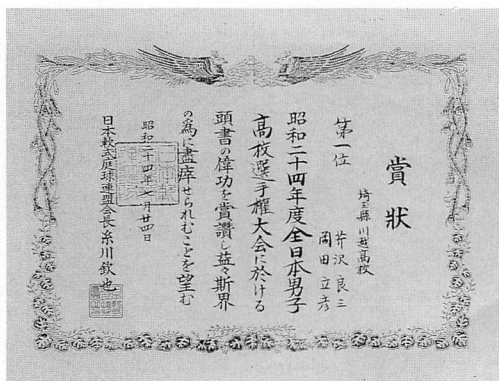 賞狀
埼玉縣川越高校
第一位 芹沢良三
岡田立彦
昭和二十四年度全日本男子
高校選手權大会に於ける
頭書の偉功を賞讃し益々斯界
の爲に盡瘁せられむことを望む
昭和二十四年七月廿四日
日本軟式庭球連盟会長糸川欽也